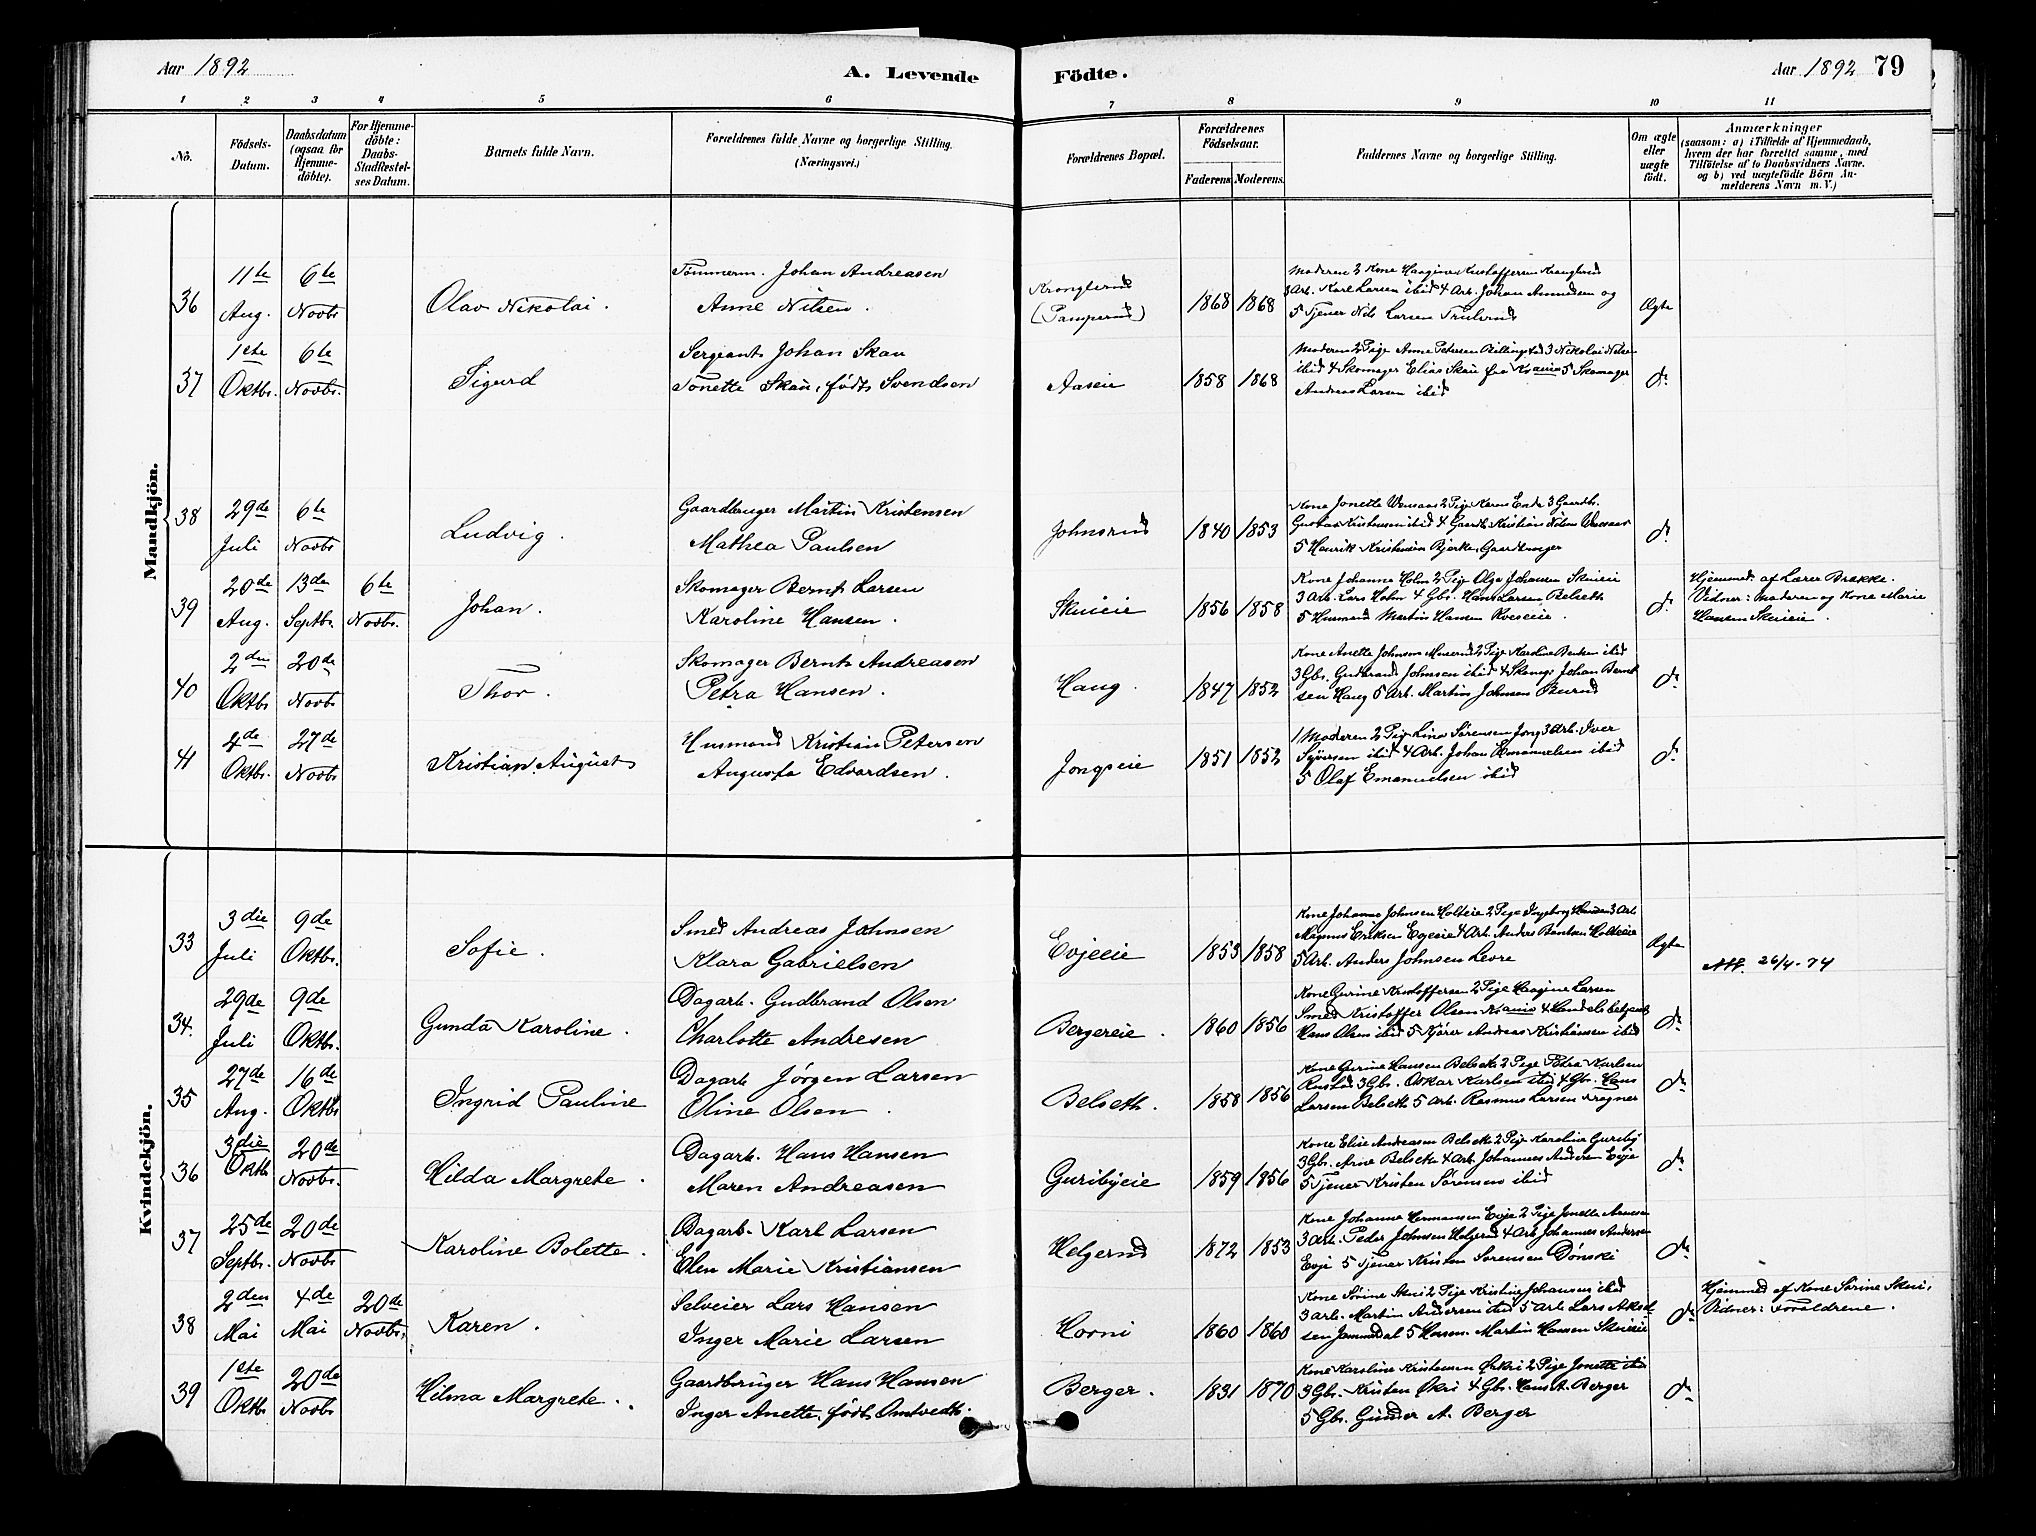 Aar 1892
A. Levende
Födte.
Aar 1892
79
1 2 3 4 5 6 7 8 9 10 11
No.
Födsels-
Datum.
Daabsdatum
(ogsaa for
Hjemme-
döbte).
For Hjemme-
döbte:
Daabs-
Stadfæstel-
ses Datum.
Barnets fulde Navn.
Forældrenes fulde Navne og borgerlige Stilling.
(Næringsvei.)
Forældrenes Bopæl.
Forældrenes
Födselsaar.
Faderens Moderens.
Faddernes Navne og borgerlige Stilling.
Om ægte
eller
uægte
födt.
Anmærkninger
(saasom: a) i Tilfælde af Hjemmedaab,
hvem der har forrettet samme, med
Tilföielse af to Daabsvidners Navne,
og b) ved uægtefödte Börn An-
melderens Navn m. V.)
Mandkjön.
36
11te Aug.
6te Novbr
Olav Nikolai.
Tömmerm. Johan Andreasen
Anne Nilsen.
Kronglerud
(Pamperud)
1868 1868
Moderen 2 Kone Haagine Kristoffersen Kranglerud
3 Arb. Karl Larsen ibid 4 Arb. Johan Amundsen og
5 Tjener Nils Larsen Trulsrud
Ægte
37
1ste Oktbr.
6te Novbr.
Sigurd
Sergeant Johan Skau
Tonette Skau, födt Svendsen
Aaseie
1858 1868
Moderen 2 Pige Anne Petersen 3 Nikolai Nilsen
ibid 4 Skomager Elias Skau fra Krania 5 Skomager
Andreas Larsen ibid
do
38
29de Juli
6te Novbr
Ludvig.
Gaardbruger Martin Kristensen
Mathea Paulsen
Johnsrud
1840 1853
Kone Jonette Wensaas 2 Pige Karen Endr 3 Gaardb.
Gustav Kristensen ibid 4 Gaardb. Kristian Nilsen Wensaas
5 Henrik Kristensen Bjerke, Gaardbruger
do
39
20de Aug.
13de Septbr.
6te Novbr.
Johan.
Skomager Bernt Larsen
Karoline Hansen.
Skuieie
1856 1858
Kone Johanne Holm 2 Pige Olga Johansen Skuieie
3 Arb. Lars Holm 4 Gbr. Hans Larsen Belseth
5 Husmand Martin Hansen Kveseie.
do
Hjemmed. af Lærer Brække.
Vidner: Moderen og Kone Marie
Hansen Skuieie.
40
2den Oktbr
20de Novbr
Thor.
Skomager Bernt Andreasen
Petra Hansen.
Haug.
1847 1852
Kone Anette Johnsen 2 Pige Karoline Berntsen ibid
3 Gbr. Gudbrand Johnsen ibid 4 Skomgr Johan Bernt
sen Haug 5 Arb. Martin Johnsen
do
41
4de Oktbr.
27de Novbr
Kristian August
Husmand Kristian Petersen
Augusta Edvardsen.
Jongseie
1851 1852
1 Moderen 2 Pige Lina Sørensen Jong 3 Arb. Iver
Syversen ibid 4 Arb. Johan Emanuelsen ibid
5 Olaf Emanuelsen ibid
do
Kvindekjön.
33
3die Juli
9de Oktbr.
Sofie.
Smed Andreas Johnsen
Klara Gabrielsen
Evjeeie
1853 1858
Kone Johanne Johnsen Holteie 2 Pige Ingeborg Hansen 3 Arb
Magnus Eriksen Evjeeie 4 Arb. Anders Berntsen Holteeie
5 Arb. Anders Johnsen Levre
Ægte
Att. 26/4-74
34.
29de Juli
9de Oktbr.
Gunda Karoline.
Dagarb. Gudbrand Olsen
Charlotte Andresen
Bergereie.
1860 1856
Kone Gurine Kristoffersen 2 Pige Haagine Larsen
Smed Kristoffer Olsen Krania 4 Handelsbetjent
Hans Olsen ibid 5 Kjører Andreas Kristiansen ibid
do
35
27de Aug.
16de Oktbr
Ingrid Pauline
Dagarb Jørgen Larsen
Oline Olsen.
Belseth.
1858 1856
Kone Gurine Hansen Belseth 2 Pige Petra Karlsen
Rustad 3 Gbr. Oskar Karlsen ibid 4 Gbr. Hans
Larsen Belseth 5 Arb. Rasmus Larsen
do
36
3die Oktb
20de Novbr.
Hilda Margrete.
Dagarb. Hans Hansen
Maren Andreasen
Guribyeie
1859 1856
Kone Elise Andreasen Belseth 2 Pige Karoline Guriby
3 Gbr. Arne Belseth 4 Arb. Johannes Andersen Evje
5 Tjener Kristen Sørensen ibid
do
37
25de Septbr.
20de Novbr
Karoline Bolette.
Dagarb. Karl Larsen
Elen Marie Kristiansen
Helgerud
1872 1853
Kone Johanne Hermansen Evje 2 Pige Jonette Arnesen
3 Arb. Peder Johnsen Helgerud 4 Arb Johannes Andersen
Evje 5 Tjener Kristen Sørensen Dønski
do
38
2den Mai
4de Mai
20de Novbr.
Karen.
Selveier Lars Hansen
Inger Marie Larsen
Horni
1860 1860
Kone Sørine Skui 2 Pige Kristine Johansen ibid
3 Arb. Martin Andersen ibid 5 Arb Lars Aksel
sen Jammerdal 5 Husm. Martin Hansen Skuieie
do
Hjemmed af Kone Sørine Skui,
Vidner: Forældrene.
39
1ste Oktbr
20de Novbr
Hilma Margrete.
Gaardbruger Hans Hansen
Inger Anette, født Omtvedt.
Berger.
1831 1870
Kone Karoline Kristensen Økri 2 Pige Jonette ibid
3 Gbr. Kristen Økri 4 Gbr. Hans A. Berger
5 Gbr. Gunder A. Berger
do